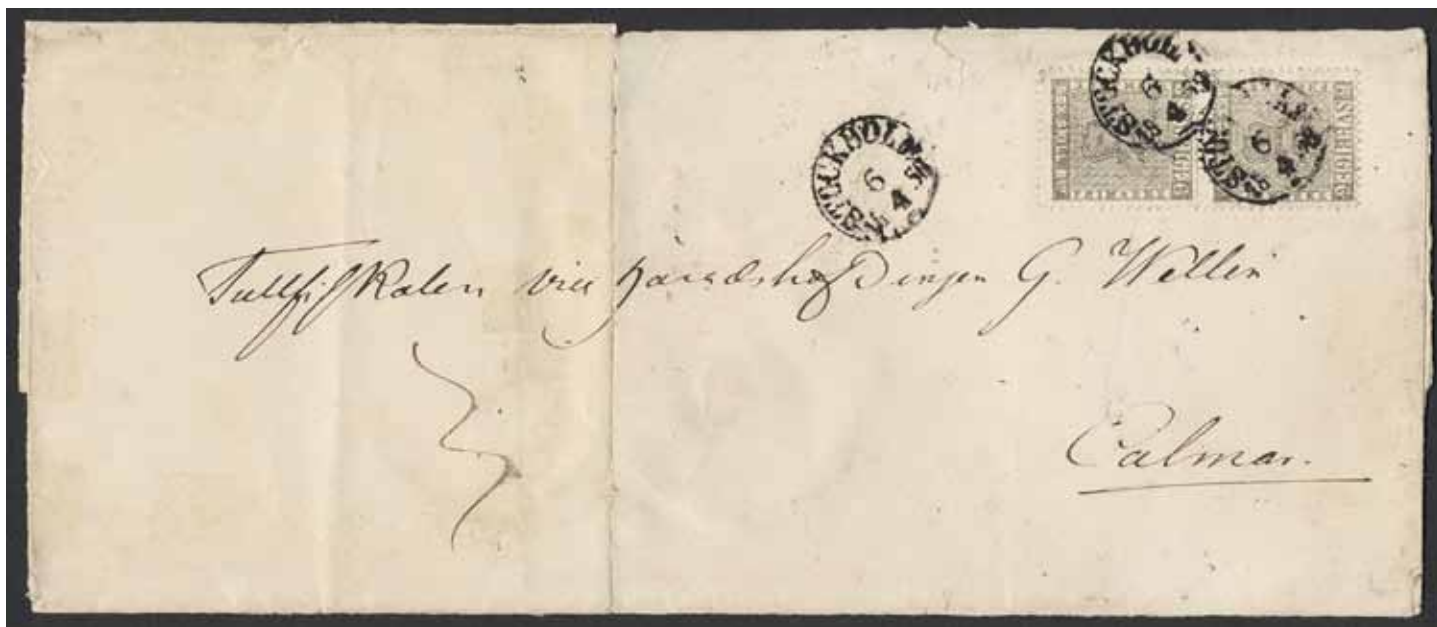 STOCKHOLM
6
4
STOCKHOLM
6
4
6
4
SVERIGE
FRIMÄRKE
Tullfiskalen vice Häradshöfdingen G. Wellin
Calmar.